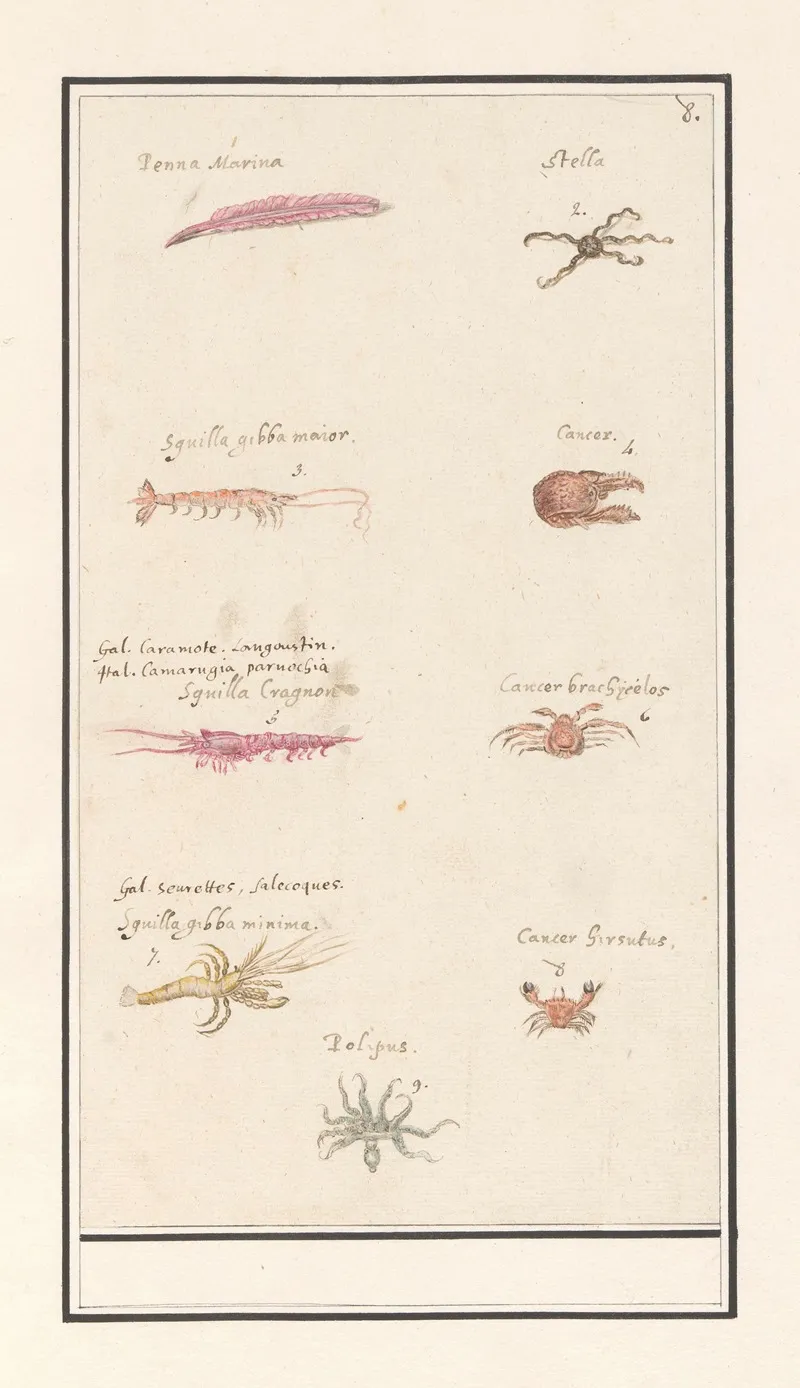 8.
1
Penna Marina
Stella
2.
Squilla gibba maior.
3.
Cancer.
4.
Gal. Caramote. Langoustin.
Ital. Camarugia, parnochia
Squilla Cragnon
5
Cancer brachÿcelos
6
Gal. seurettes, salecoques.
Squilla gibba minima.
7.
Cancer hirsutus,
8
Polipus.
9.